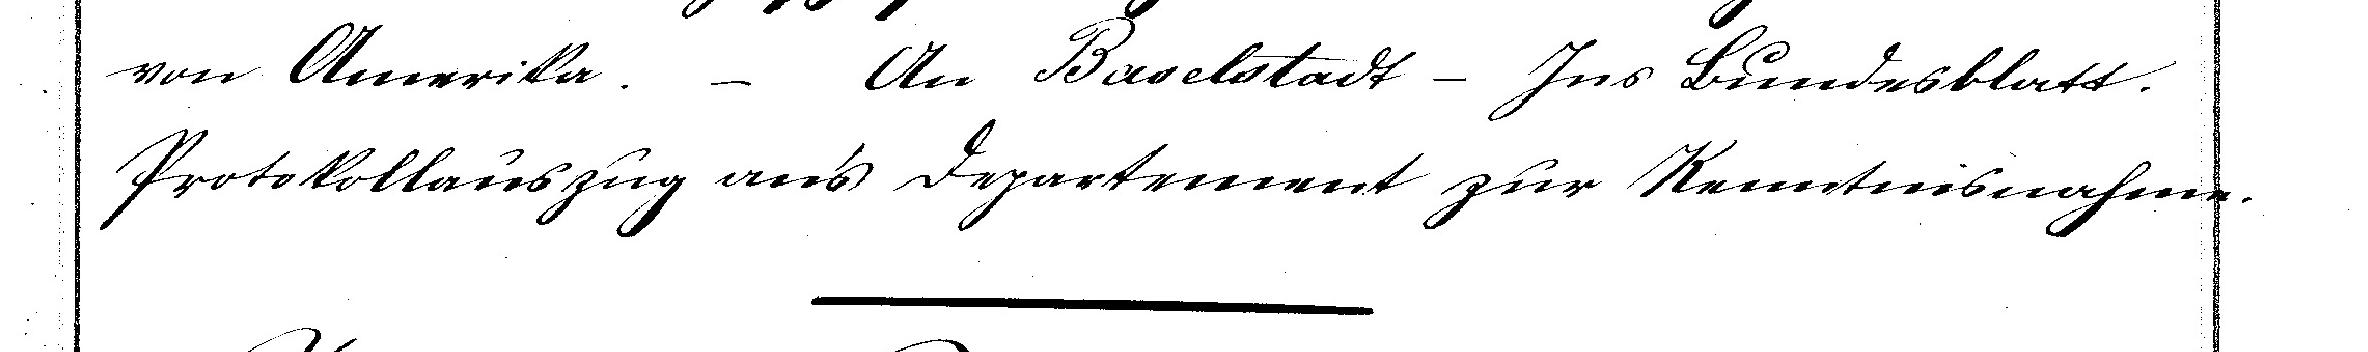 von Amerika. – An Baselstadt – Ins Bundesblatt.
Protokollauszug an's Departement zur Kenntnisnahme.